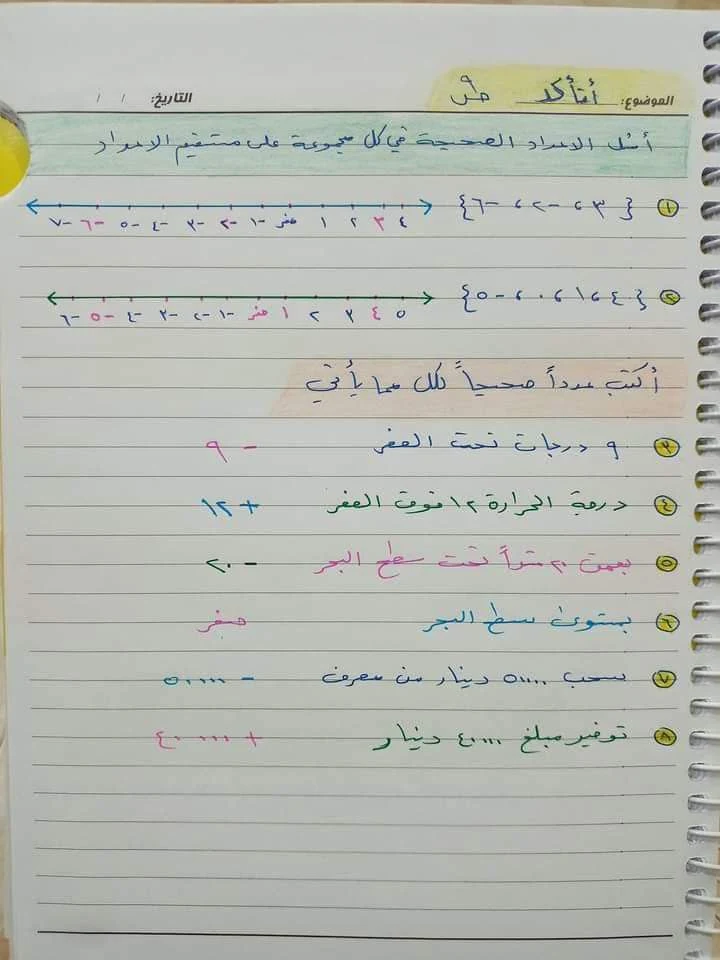 الموضوع: أتأكد ص٩ التاريخ: / /
أمثل الاعداد الصحيحة في كل مجموعة على مستقيم الاعداد
١ {٣ ، ٢- ، ٦-}
٧- ٦- ٥- ٤- ٣- ٢- ١- صفر ١ ٢ ٣ ٤
٢ {٤ ، ١ ، ٠ ، ٥-}
٦- ٥- ٤- ٣- ٢- ١- صفر ١ ٢ ٣ ٤ ٥
أكتب عدداً صحيحاً لكل مما يأتي
٣ ٩ درجات تحت الصفر - ٩
٤ درجة الحرارة ١٢ فوق الصفر + ١٢
٥ بعمق ٢٠ متراً تحت سطح البحر - ٢٠
٦ بمستوى سطح البحر صفر
٧ سحب ٥٠٠٠٠ دينار من مصرف - ٥٠٠٠٠
٨ توفير مبلغ ٤٠٠٠٠ دينار + ٤٠٠٠٠